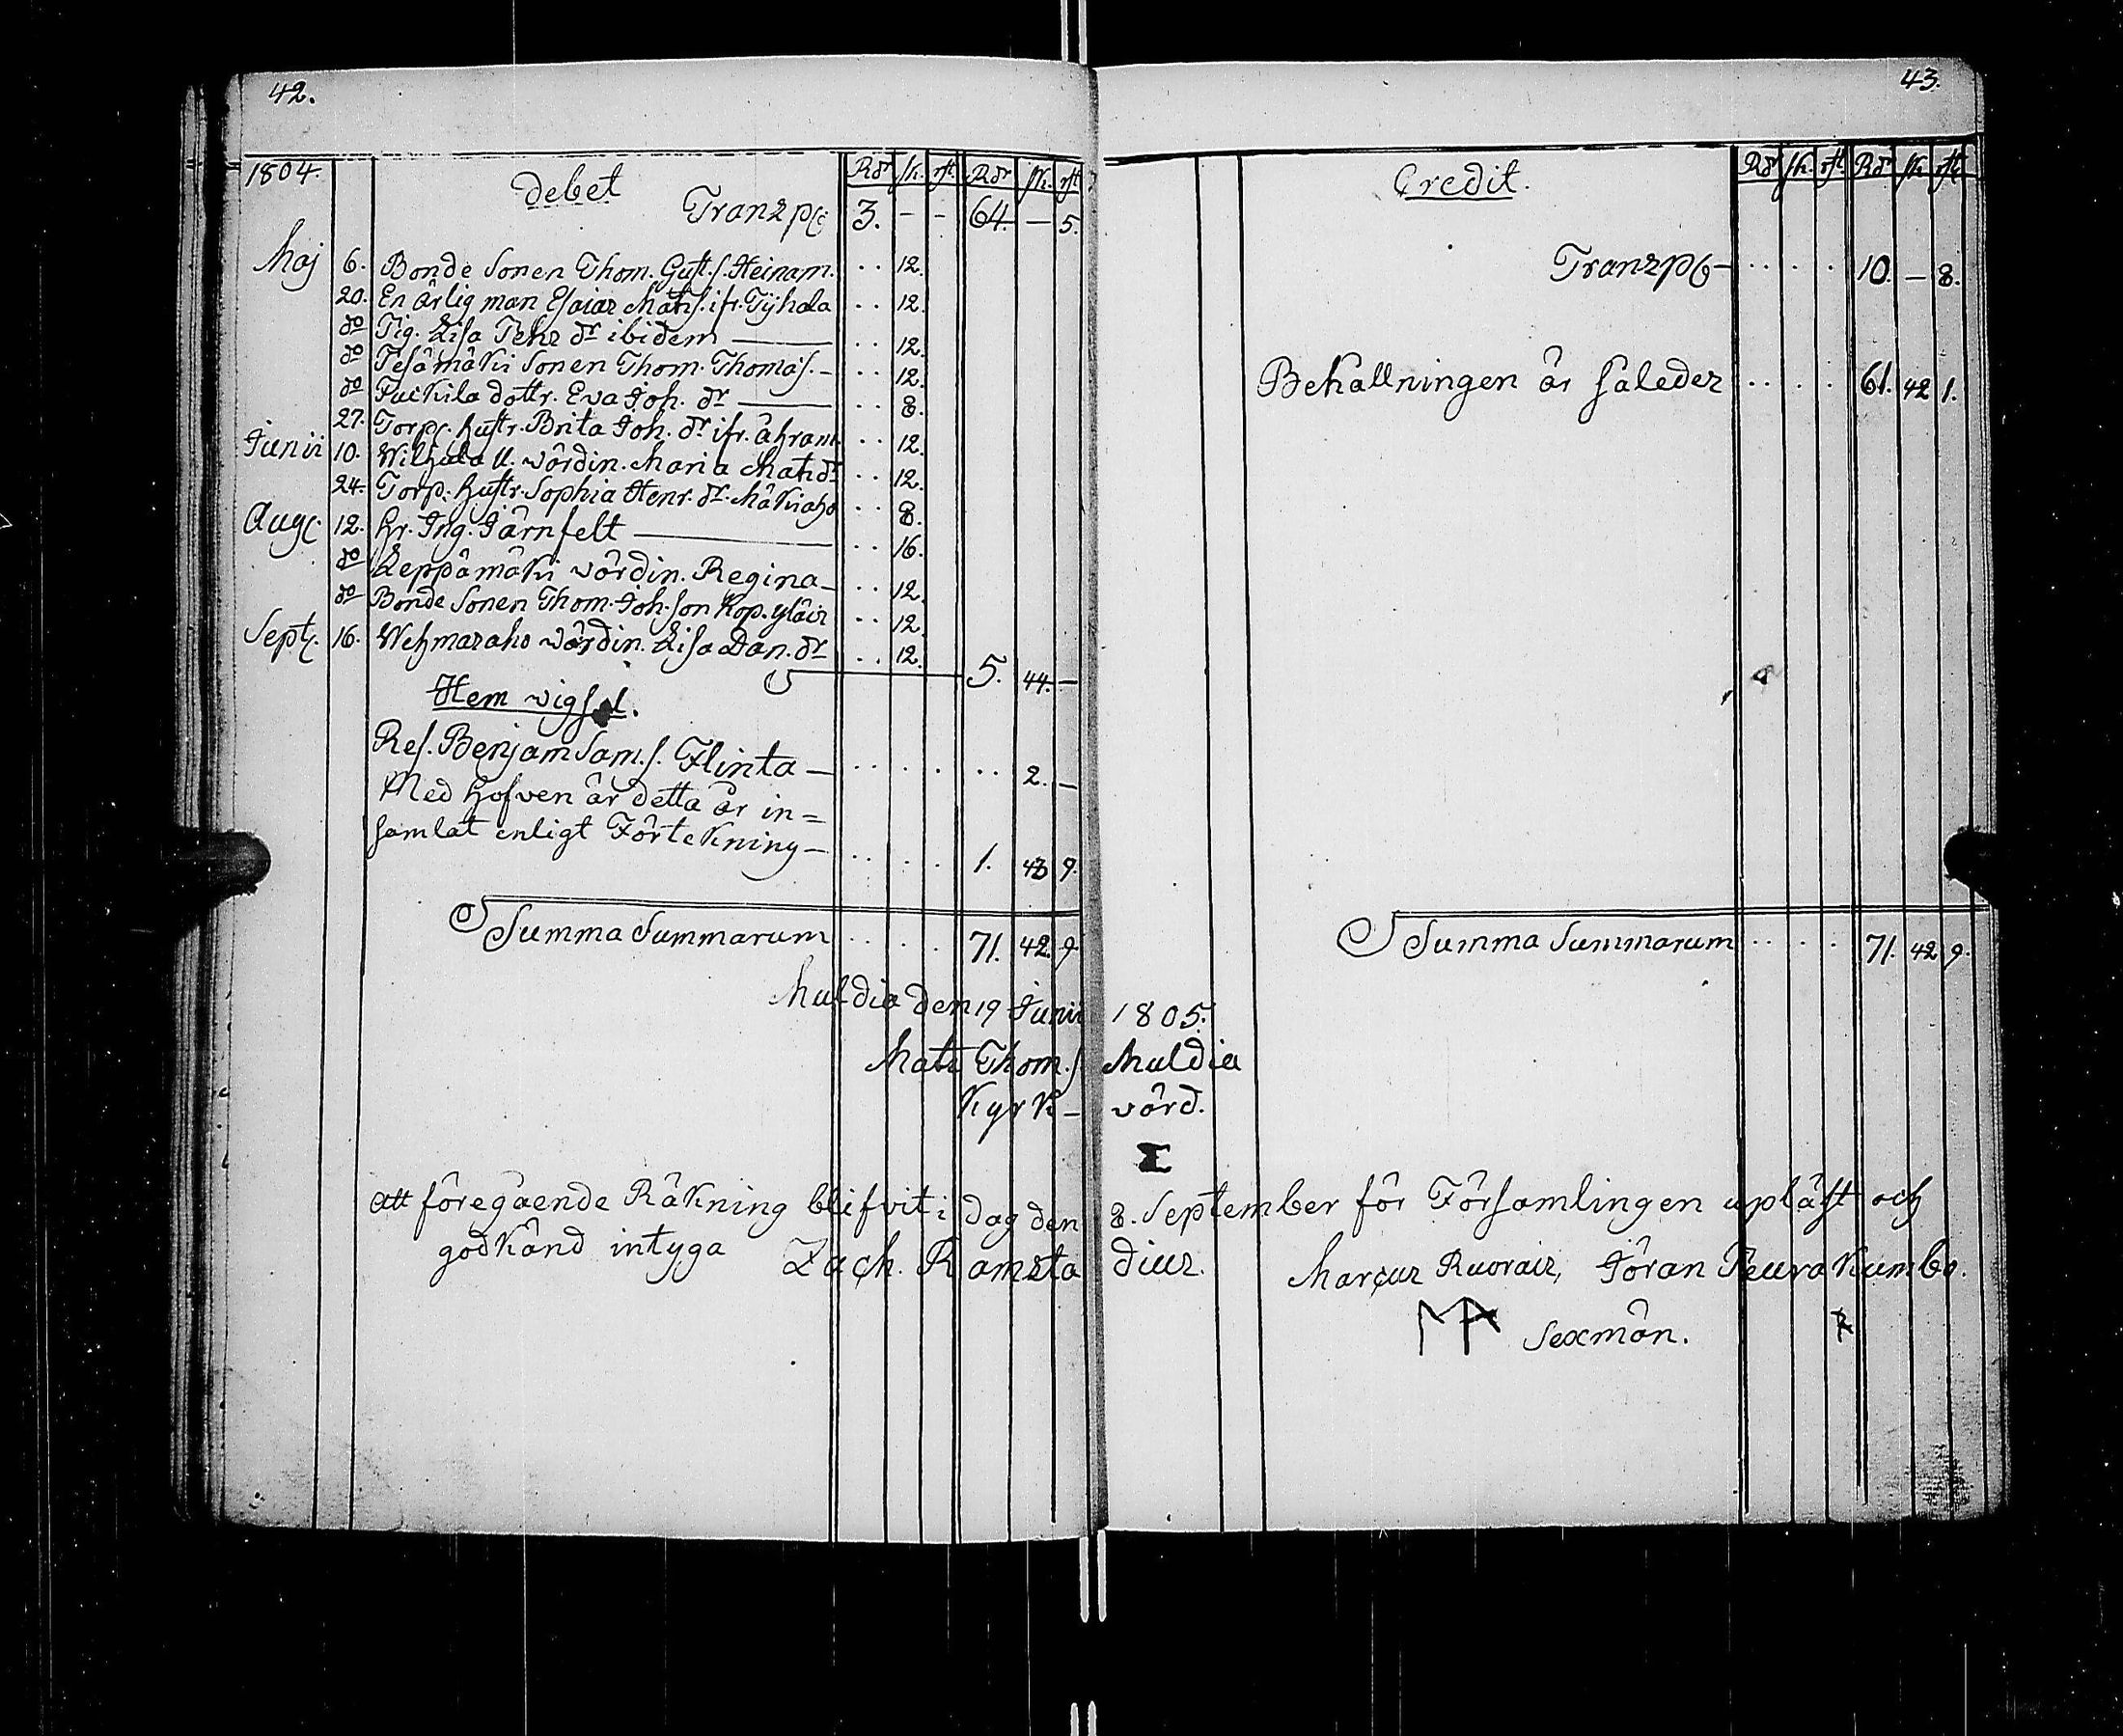 42.
1804. Debet Rdr sk. rst Rdr sk. rst
Transp. 3. - - 64. - 5.
Maj 6. Bonde Sonen Thom. Gust. s. Heinam. . . 12.
20. En ärlig man Esaias Mats s. ifr. Tyhala . . 12.
do Pig. Lisa Pehrs dr ibidem . . 12.
do Pesämäki Sonen Thom. Thomas s. . . 12.
do Puikila dottr. Eva Joh. dr . . 8.
27. Torp. hustr. Brita Joh. dr ifr. . . 12.
Junii 10. Wilhula v. vördin. Maria Mats dr . . 12.
24. Torp. hustr. Sophia Henr. dr Mäkiaho . . 8.
Aug. 12. Hr. Ing. Järnfelt . . 16.
do Leppämäki vördin. Regina . . 12.
do Bonde Sonen Thom. Joh. son Kop. yläis . . 12.
Sept. 16. Wehmasaho Wärdin. Lisa Dan. dr . . 12.
5. 44. -
Hem vigsel.
Res. Benjam Sam. s. Flinta . . . . . . 2. -
Med Hofven är detta år in=
samlat enligt Förtekning . . . . 1. 43 9.
Summa Summarum . . . . 71. 42. 9
43.
Credit. Rdr sk. rst Rdr sk rst
Transp. . . . . 10. - 8.
Behållningen är således . . . . 61. 42 1.
Summa Summarum . . . . 71. 42 9.
Muldia den 19 Junii 1805.
Mats Thom. s. Muldia
Kyrk- vörd.
att föregående Räkning blifvit i dag den 8. September för Församlingen upläst och
godkänd intyga Zach. Ramstadius. Marcus Ruorais, Jöran Peurakumbo.
Sexmän.